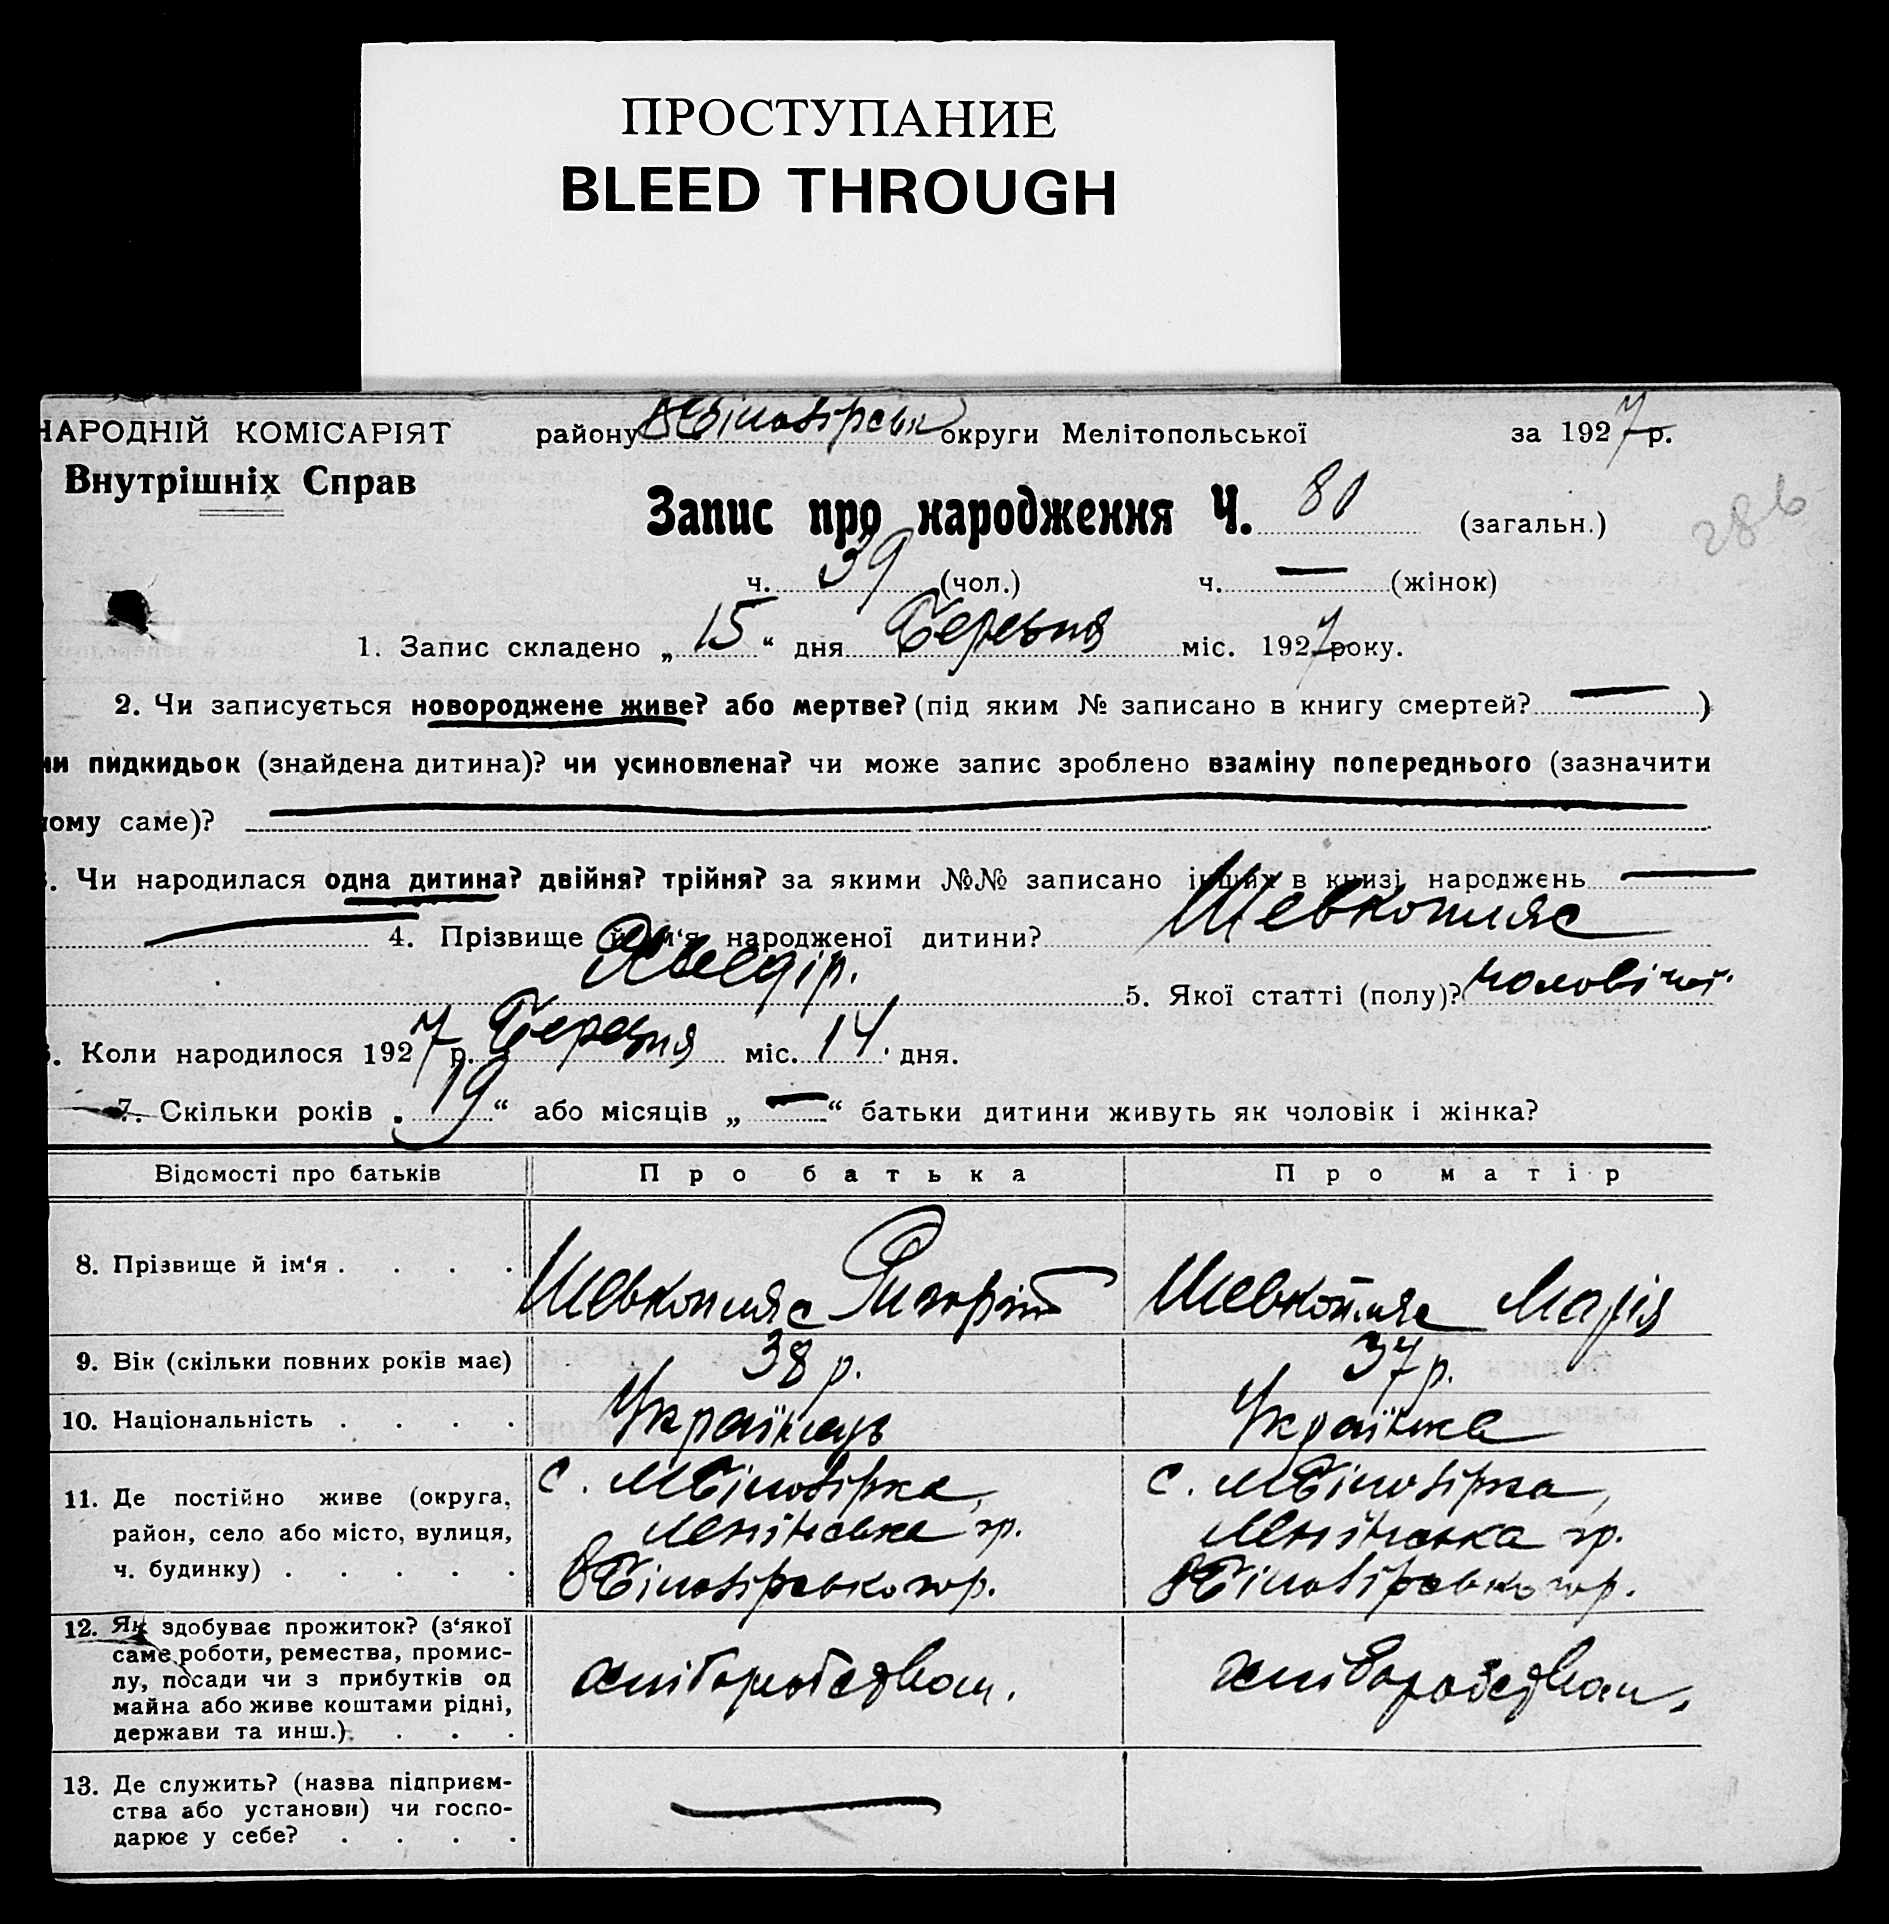 ПРОСТУПАНИЕ
BLEED THROUGH
НАРОДНІЙ КОМІСАРІЯТ району округи Мелітопольської за 1927 р.
Внутрішніх Справ
Запис про народження Ч. 80 (загальн.)
286
ч. 39 (чол.) ч. — (жінок)
1. Запис складено „ 15 “ дня Березня міс. 1927 року.
2. Чи записується новороджене живе? або мертве? (під яким № записано в книгу смертей? — )
чи пидкидьок (знайдена дитина)? чи усиновлена? чи може запис зроблено взаміну попереднього (зазначити
чому саме)?
3. Чи народилася одна дитина? двійня? трійня? за якими №№ записано інших в книзі народжень —
4. Прізвище й им‘я народженої дитини? Шевкопляс
5. Якої статті (полу)?
6. Коли народилося 1927 р. Березня міс. 14 дня.
7. Скільки років „ 19 “ або місяців „ — “ батьки дитини живуть як чоловік і жінка?
Відомості про батьків Про батька Про матір
8. Прізвище й ім‘я . . . . Шевкопляс Шевкопляс Марія
9. Вік (скільки повних років має) 38 р. 37 р.
10. Національність . . . . Українець Українка
11. Де постійно живе (округа, с. МБілозірка, с. МБілозірка,
район, село або місто, вулиця, Ленінська Ленінська
ч. будинку) . . . . .
12. Як здобуває прожиток? (з‘якої
саме роботи, ремества, промис-
лу, посади чи з прибутків од
майна або живе коштами рідні,
держави та инш.) . . .
13. Де служить? (назва підприєм-
ства або установи) чи госпо-
дарює у себе? . . . . —